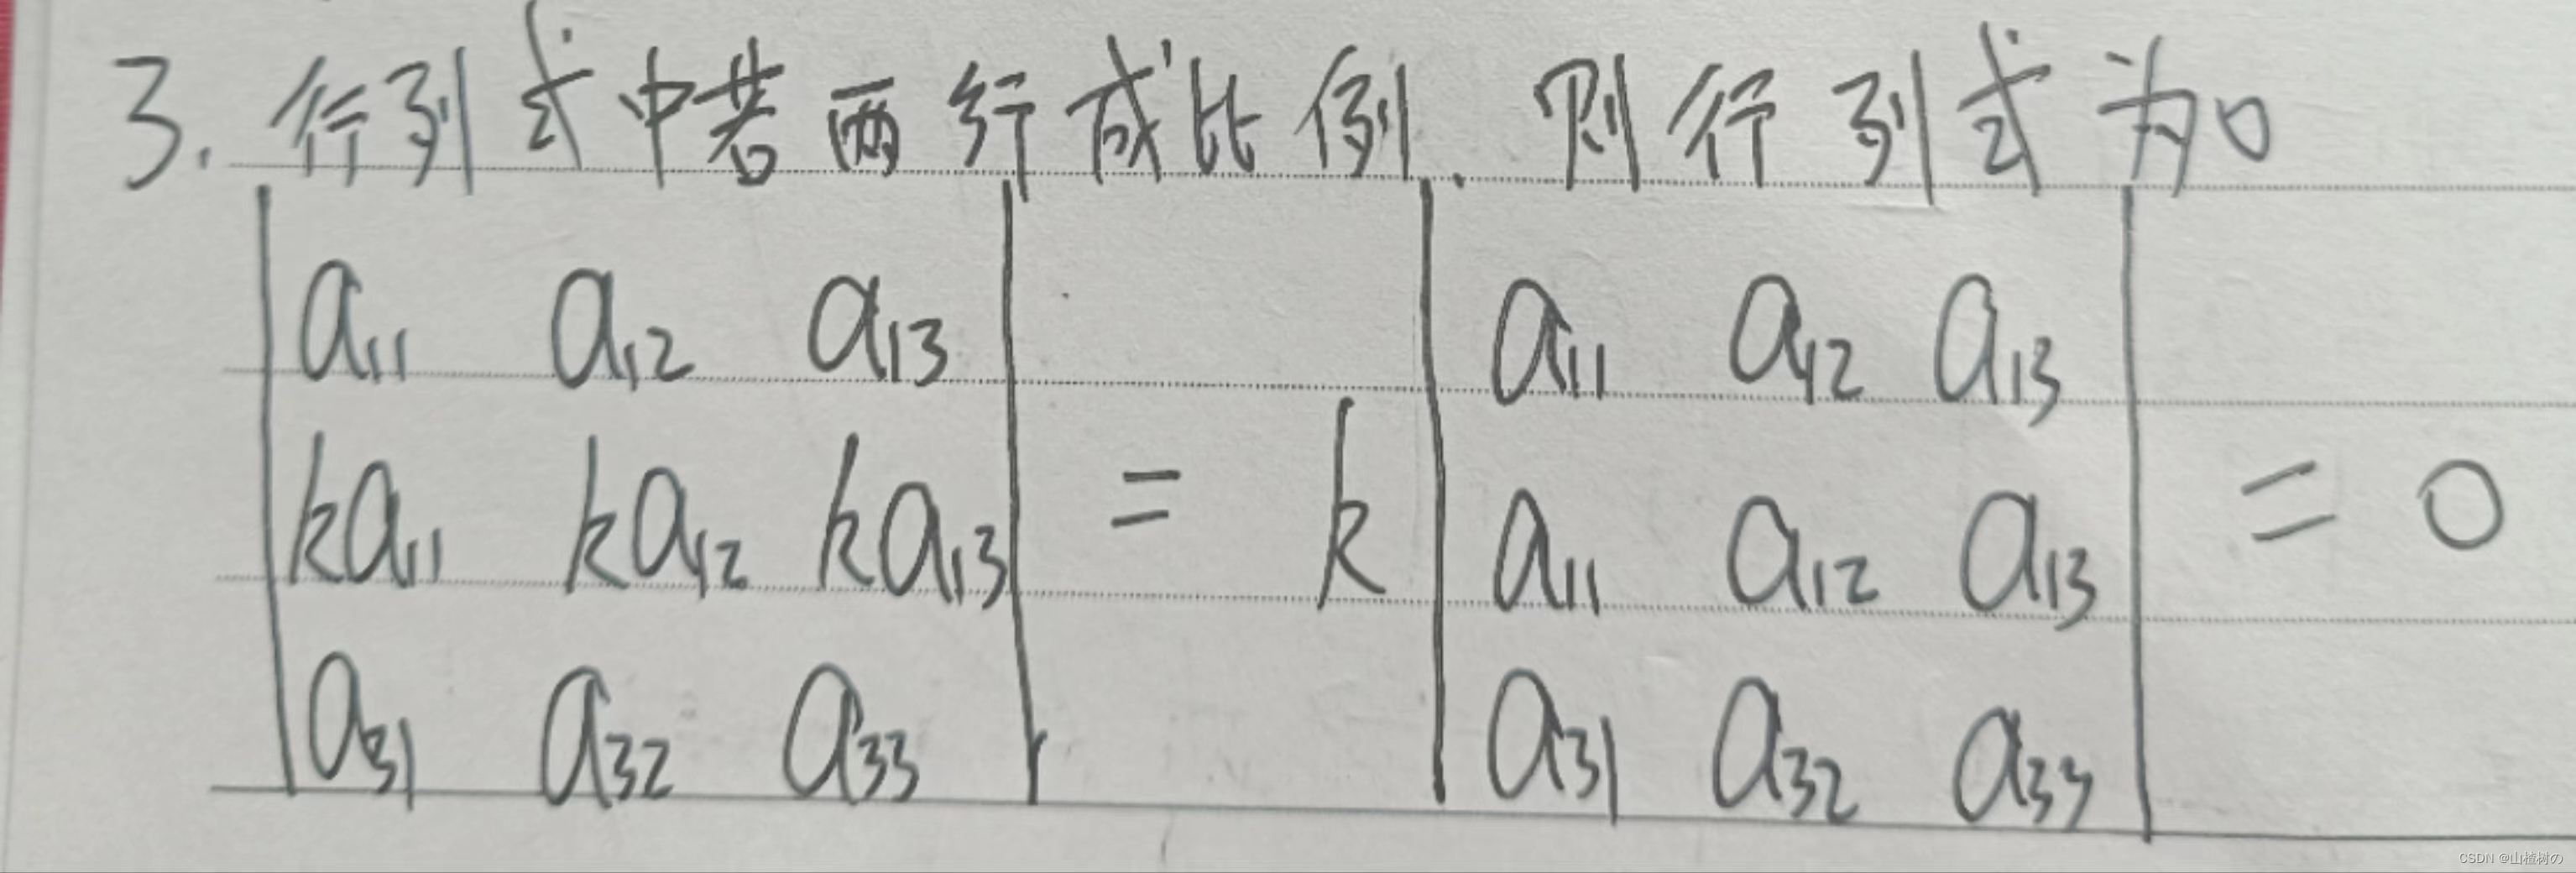 3. 行列式中若两行成比例. 则行列式为0
| a₁₁ a₁₂ a₁₃ | | a₁₁ a₁₂ a₁₃ |
| ka₁₁ ka₁₂ ka₁₃ | = k | a₁₁ a₁₂ a₁₃ | = 0
| a₃₁ a₃₂ a₃₃ | | a₃₁ a₃₂ a₃₃ |
CSDN @山楂树の